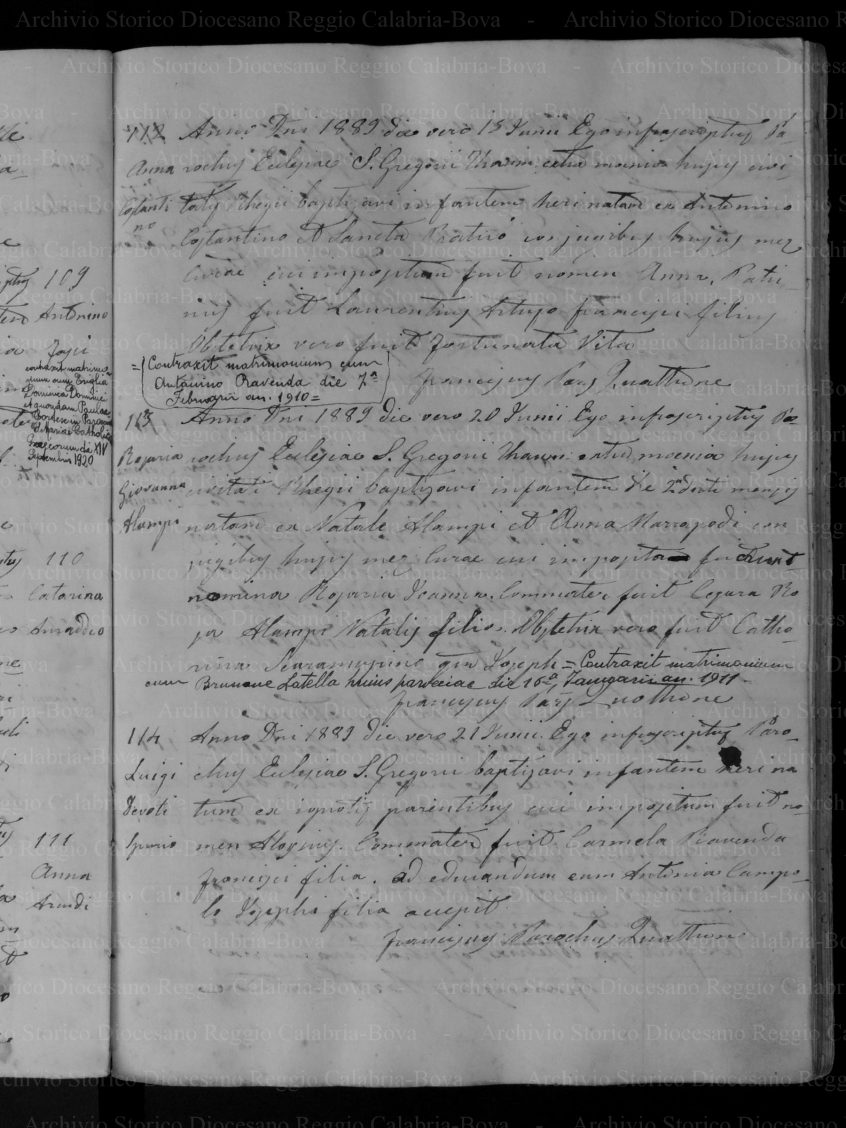 Archivio Storico Diocesano Reggio Calabria-Bova
109
Antonino
Zagi
contraxit matrim
Dominica
Septembris 1920
110
Catarina
Amaddeo
111
Anna
Arardi
112 Anno Dni 1889 die vero 15 Junii Ego infrascriptus Pa-
Anna rochus Eclesiae S. Gregorii Thaum. extra moenia hujus civi-
Costanti tatis Rhegii baptizavi infantem heri natam ex Antonino
no Costantino et Sancta Pratico conjugibus hujus meae
Curae cui impositum fuit nomen Anna. Patri-
nus fuit Laurentius Artuso Francisci filius
Obstetrix vero fuit Fortunata Vita
= Contraxit matrimonium cum
Antonino Ravenda die 7a
Februarii an. 1910 =
Franciscus Par. Quattrone
113 Anno Dni 1889 die vero 20 Junii Ego infrascriptus Pa-
Rosaria rochus Eclesiae S. Gregorii Thaum. extra moenia hujus
Giovanna civitatis Rhegii baptizavi infantem die 2a hujus mensis
Alampi natam ex Natale Alampi et Anna Marrapodi con
jugibus hujus meae Curae cui imposita fuerunt
nomina Rosaria Joanna. Commater fuit Cogara Ro
sa Alampi Natalis filia. Obstetrix vero fuit Catha-
rina Scaramuzzino qm Joseph = Contraxit matrimonium
cum Brunone Latella huius paroeciae die 16a Januarii an. 1911 -
Franciscus Par. Quattrone
114 Anno Dni 1889 die vero 21 Junii Ego infrascriptus Paro-
Luigi chus Eclesiae S. Gregorii baptizavi infantem heri na
Devoti tum ex ignotis parentibus cui impositum fuit no-
Spurio men Aloysius. Commater fuit Carmela Ravenda
Francisci filia. ad educandum eum Antonia Campo-
lo Josephi filia accepit
Franciscus Parochus Quattrone